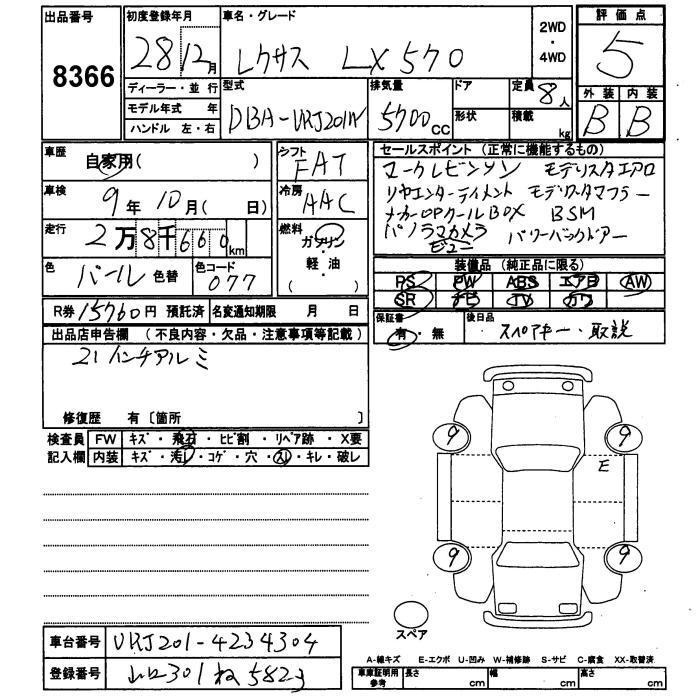 出品番号
8366
初度登録年月
28 12月
車名・グレード
レクサス LX570
2WD
・
4WD
評価点
5
ディーラー・並行
モデル年式 年
ハンドル 左・右
型式
DBA-URJ201W
排気量
5700 cc
ドア
形状
定員 8人
積載 kg
外装 内装
B B
車歴
自家用( )
シフト
FAT
車検
9年10月( 日)
冷房
AAC
走行
2万8千660km
燃料
ガソリン
軽・油
( )
色
パール 色替
色コード
077
R券 15760円 預託済
名変通知期限 月 日
セールスポイント (正常に機能するもの)
マークレビンソン モデリスタエアロ
リヤエンターテイメント モデリスタマフラー
メーカーOPクールBOX BSM
パノラマカメラ パワーバックドアー
ビュー
装備品 (純正品に限る)
PS PW ABS エアB AW
SR ナビ TV カワ
保証書
有・無
後日品
スペアキー・取説
出品店申告欄 (不良内容・欠品・注意事項等記載)
21インチアルミ
修復歴 有〔箇所 〕
検査員 FW キズ・飛石・ヒビ割・リペア跡・X要
記入欄 内装 キズ・汚レ・コゲ・穴・スレ・キレ・破レ
9 9
E
9 9
スペア
車台番号 URJ201-4234304
登録番号 301ね5823
A-線キズ E-エクボ U-凹み W-補修跡 S-サビ C-腐食 XX-取替済
車庫証明用
参考
長さ cm 幅 cm 高さ cm